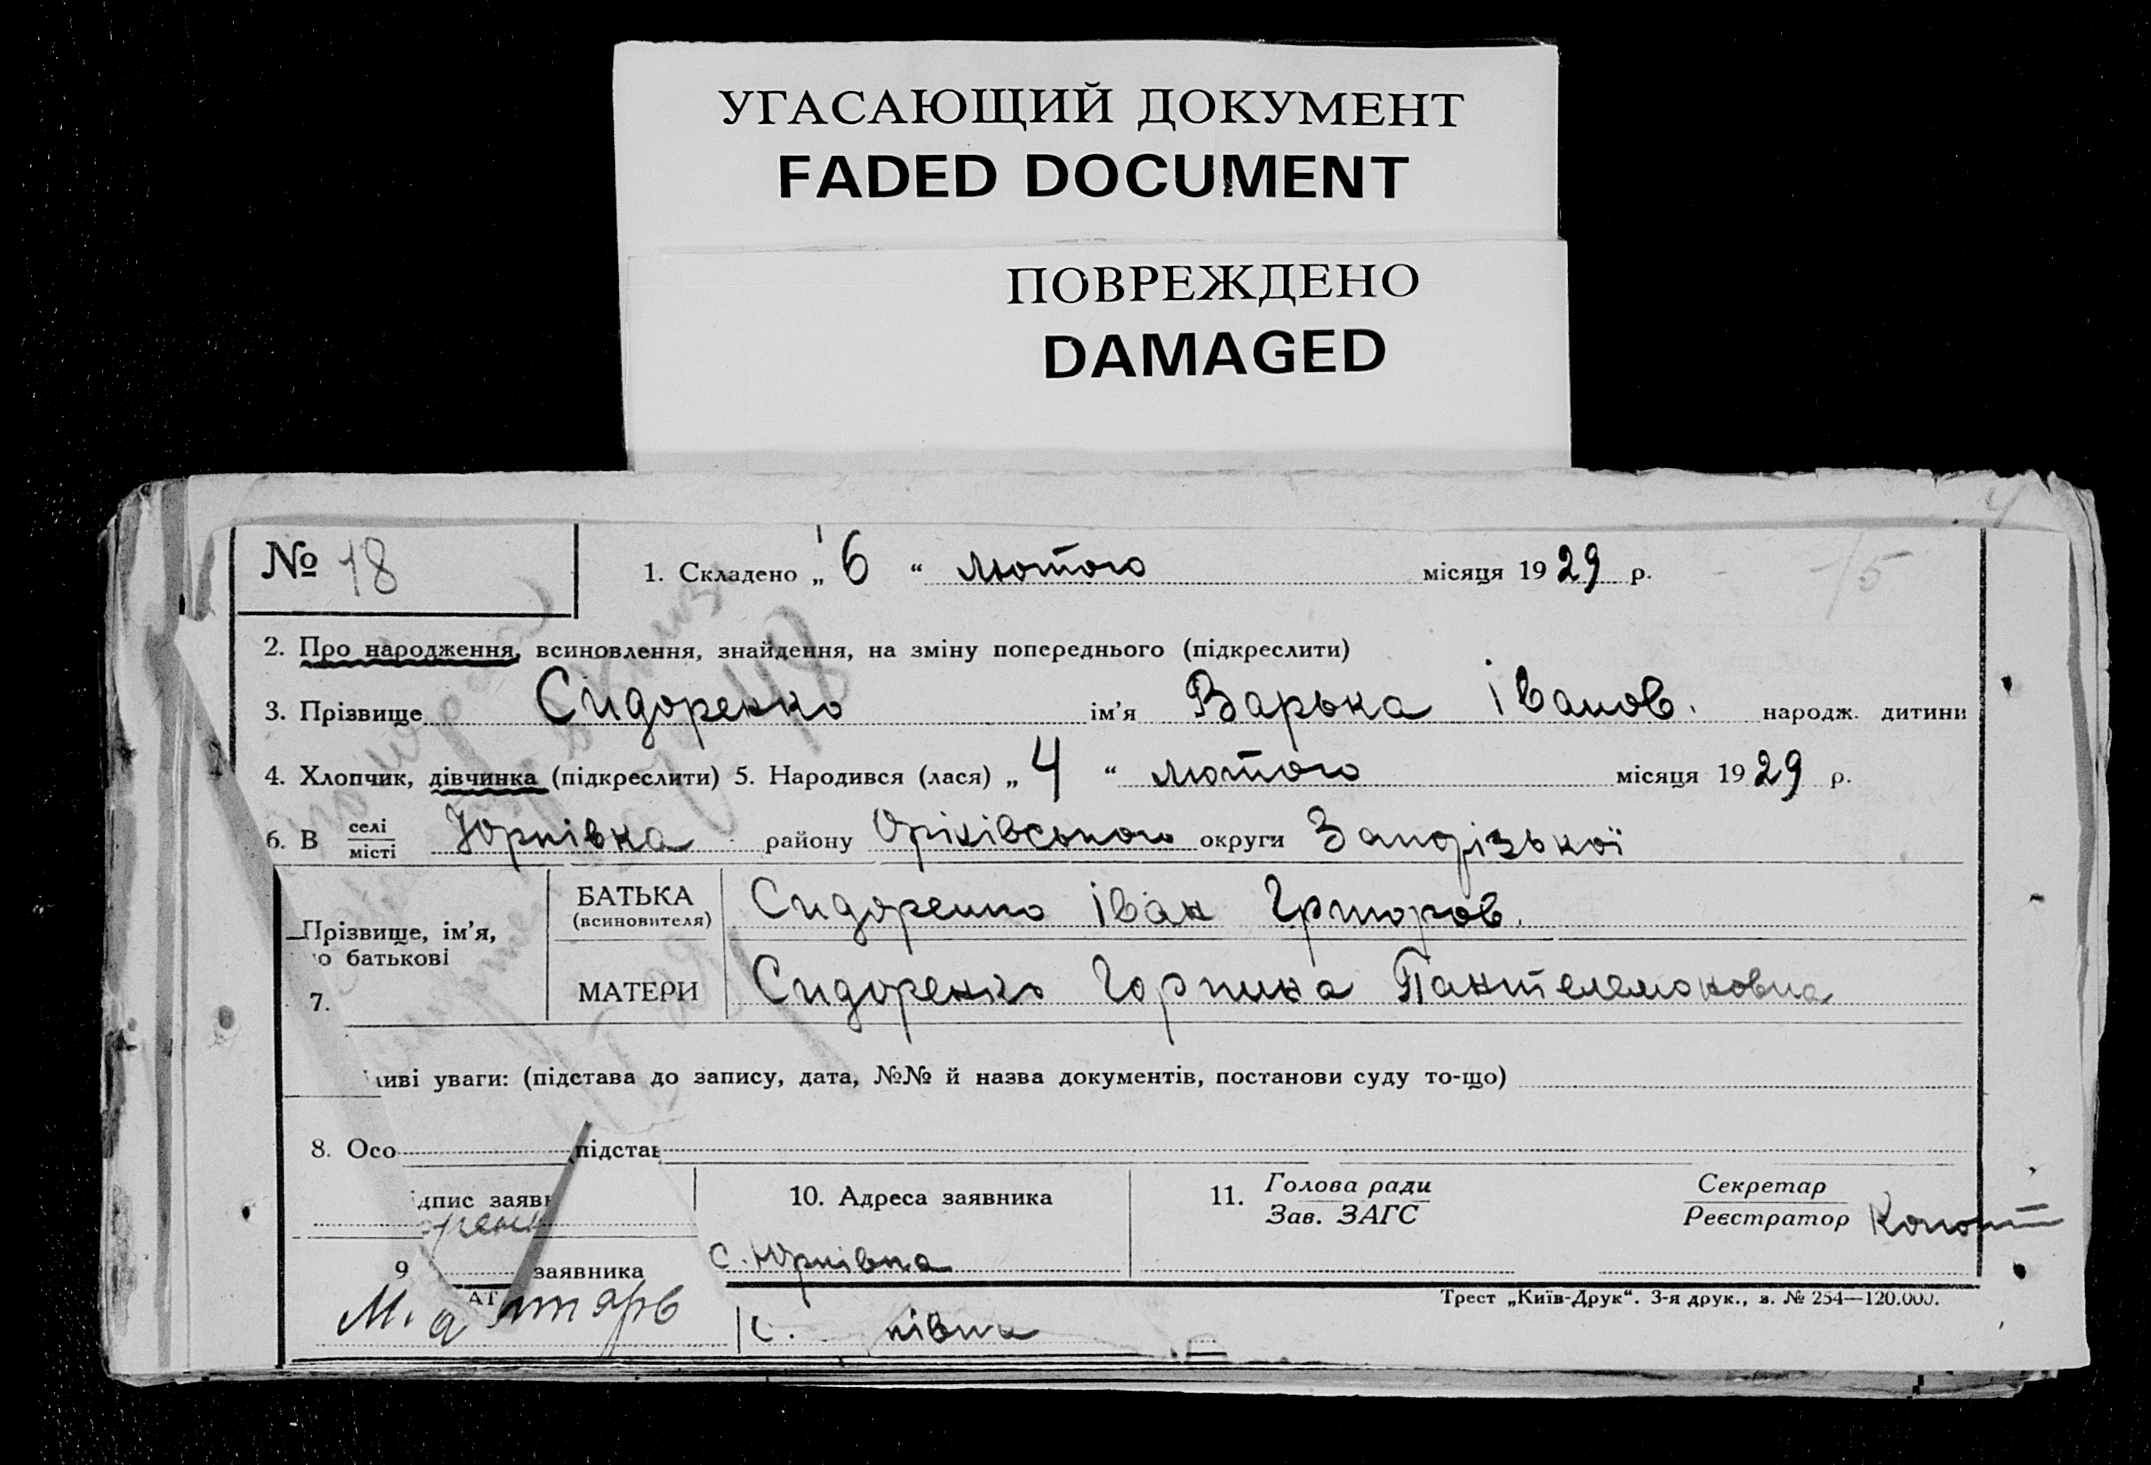 УГАСАЮЩИЙ ДОКУМЕНТ
FADED DOCUMENT
ПОВРЕЖДЕНО
DAMAGED
№ 18
1. Складено „ 6 “ лютого місяця 1929 р.
15
2. Про народження, всиновлення, знайдення, на зміну попереднього (підкреслити)
3. Прізвище Сидоренко ім’я Варька Іванов. народж. дитини
4. Хлопчик, дівчинка (підкреслити) 5. Народився (лася) „ 4 “ лютого місяця 1929 р.
6. В селі/місті Юрківка району Оріхівського округи Запорізької
Прізвище, ім’я,
по батькові
7.
БАТЬКА
(всиновителя)
Сидоренко Іван Григоров.
МАТЕРИ
Сидоренко Горпина Пантелемоновна
иві уваги: (підстава до запису, дата, №№ й назва документів, постанови суду то-що)
8. Осо підстав
дпис заяв
10. Адреса заявника
11. Голова ради
Зав. ЗАГС
Секретар
Реєстратор
9 заявника
с. Юрківка
Трест „Київ-Друк“. 3-я друк., з. № 254—120.000.
с. ківка